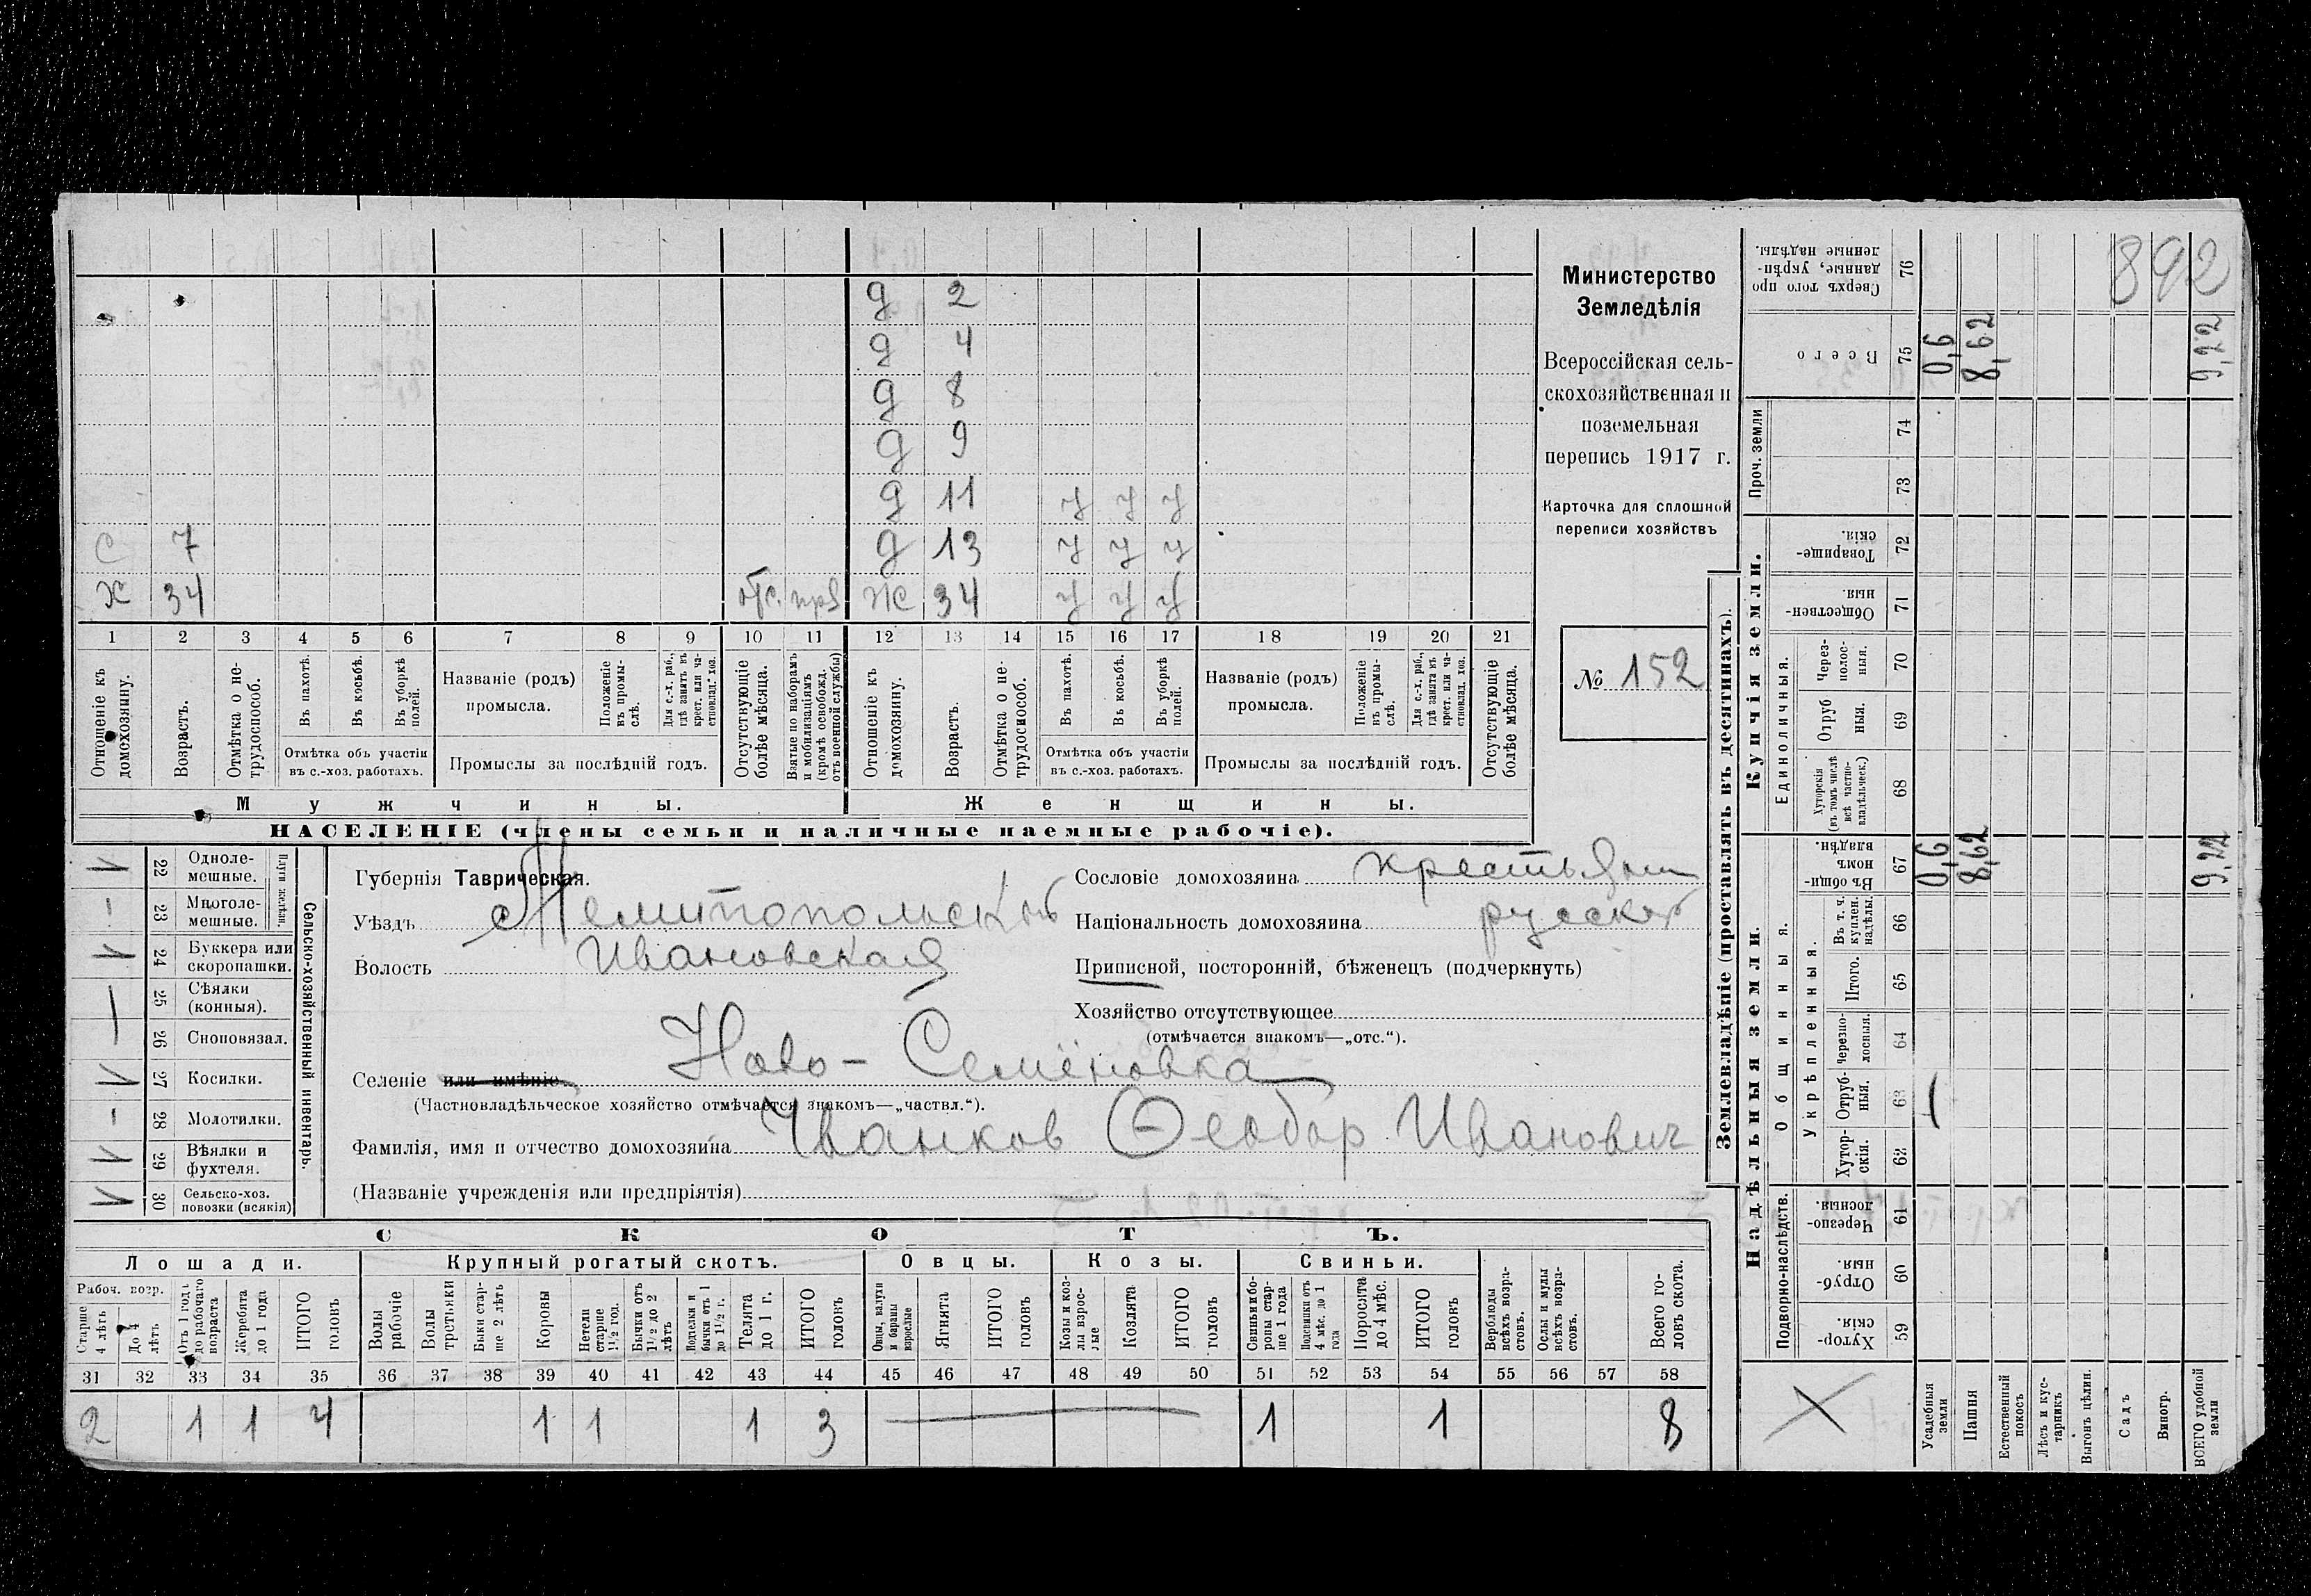 д 2
д 4
д 8
д 9
д 11 у у у
с 7 д 13 у у у
х 34 отс. пр ж 34 у у у
1 2 3 4 5 6 7 8 9 10 11 12 13 14 15 16 17 18 19 20 21
Отношеніе къ домохозяину.
Возрастъ.
Отмѣтка о нетрудоспособ.
Въ пахотѣ.
Въ косьбѣ.
Въ уборкѣ полей.
Отмѣтка объ участіи
въ с.-хоз. работахъ.
Названіе (родъ)
промысла.
Положеніе въ промыслѣ.
Для с.-х. раб., гдѣ занятъ въ крест. или частновлад. хоз.
Промыслы за послѣдній годъ.
Отсутствующіе болѣе мѣсяца.
Взятые по наборамъ и мобилизаціямъ (кромѣ освобожд. отъ военной службы)
Отношеніе къ домохозяину.
Возрастъ.
Отмѣтка о нетрудоспособ.
Въ пахотѣ.
Въ косьбѣ.
Въ уборкѣ полей.
Отмѣтка объ участіи
въ с.-хоз. работахъ.
Названіе (родъ)
промысла.
Положеніе въ промыслѣ.
Для с.-х. раб., гдѣ занята въ крест. или частновлад. хоз.
Промыслы за послѣдній годъ.
Отсутствующіе болѣе мѣсяца.
Мужчины. Женщины.
НАСЕЛЕНІЕ (члены семьи и наличные наемные рабочіе).
Министерство
Земледѣлія
Всероссійская сель-
скохозяйственная и
поземельная
перепись 1917 г.
Карточка для сплошной
переписи хозяйствъ
№ 152
Сельско-хозяйственный инвентарь.
22 Однолемешные.
23 Многолемешные.
24 Буккера или скоропашки.
25 Сѣялки (конныя).
26 Сноповязал.
27 Косилки.
28 Молотилки.
29 Вѣялки и фухтеля.
30 Сельско-хоз. повозки (всякія)
Губернія Таврическая.
Уѣздъ Мелитопольский
Волость Ивановская
Сословіе домохозяина крестьянин
Національность домохозяина русский
Приписной, посторонній, бѣженецъ (подчеркнуть)
Хозяйство отсутствующее
(отмѣчается знакомъ—„отс.“).
Селеніе или имѣніе Ново-Семёновка
(Частновладѣльческое хозяйство отмѣчается знакомъ—„частвл.“).
Фамилія, имя и отчество домохозяина Иванков Ѳеодор Иванович
(Названіе учрежденія или предпріятія)
СКОТЪ.
Лошади. Крупный рогатый скотъ. Овцы. Козы. Свиньи.
Рабоч. возр.
Старше 4 лѣтъ
До 4 лѣтъ
Отъ 1 года до рабочаго возраста
Жеребята до 1 года
ИТОГО головъ
Волы рабочіе
Волы третьяки
Быки старше 2 лѣтъ
Коровы
Нетели старше 1½ год.
Бычки отъ 1½ до 2 лѣтъ
Подтелки и бычки отъ 1 до 1½ г.
Телята до 1 г.
ИТОГО головъ
Овцы, валухи и бараны взрослые
Ягнята
ИТОГО головъ
Козы и козлы взрослые
Козлята
ИТОГО головъ
Свиньи и боровы старше 1 года
Подсвинки отъ 4 мѣс. до 1 года
Поросята до 4 мѣс.
ИТОГО головъ
Верблюды всѣхъ возрастовъ.
Ослы и мулы всѣхъ возрастовъ.
Всего головъ скота.
31 32 33 34 35 36 37 38 39 40 41 42 43 44 45 46 47 48 49 50 51 52 53 54 55 56 57 58
2 1 1 4 1 1 1 3 1 1 8
Землевладѣніе (проставлять въ десятинахъ).
Надѣльныя земли. Купчія земли. Проч. земли
Подворно-наслѣдств.
Общинныя.
Укрѣпленныя.
Единоличныя.
Хуторскія 59
Отрубныя. 60
Черезполосныя 61
Хуторскія. 62
Отрубныя. 63
Черезполосныя. 64
Итого. 65
Въ т. ч. куплен. надѣлы. 66
Въ общинномъ владѣн. 67
Хуторскія (въ томъ числѣ всѣ частновладѣльческ.) 68
Отрубныя. 69
Черезполосныя. 70
Общественныя. 71
Товарищескія. 72
73
74
Всего 75
Сверхъ того проданные, укрѣпленные надѣлы. 76
Усадебныя земли 0,6 0,6
Пашня 8,62 8,62
Естественный покосъ
Лѣсъ и кустарникъ
Выгонъ цѣлин.
Садъ
Виногр.
ВСЕГО удобной земли 9,22 9,22
892